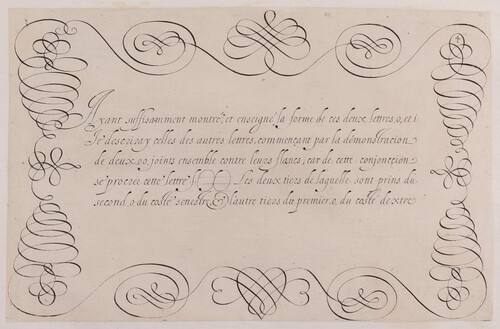 Ayant suffisamment montré, et enseigné la forme de ces deux lettres, o, et i
Je descriray celles des autres lettres, commençant par la démonstracion
de deux, oo, joints ensemble contre leurs flancs, car de cette conjonccion
se procrée cette lettre Les deux tiers de laquelle sont prins du
second, o, du costé senestre, & l'autre tiers du premier, o, du costé dextre